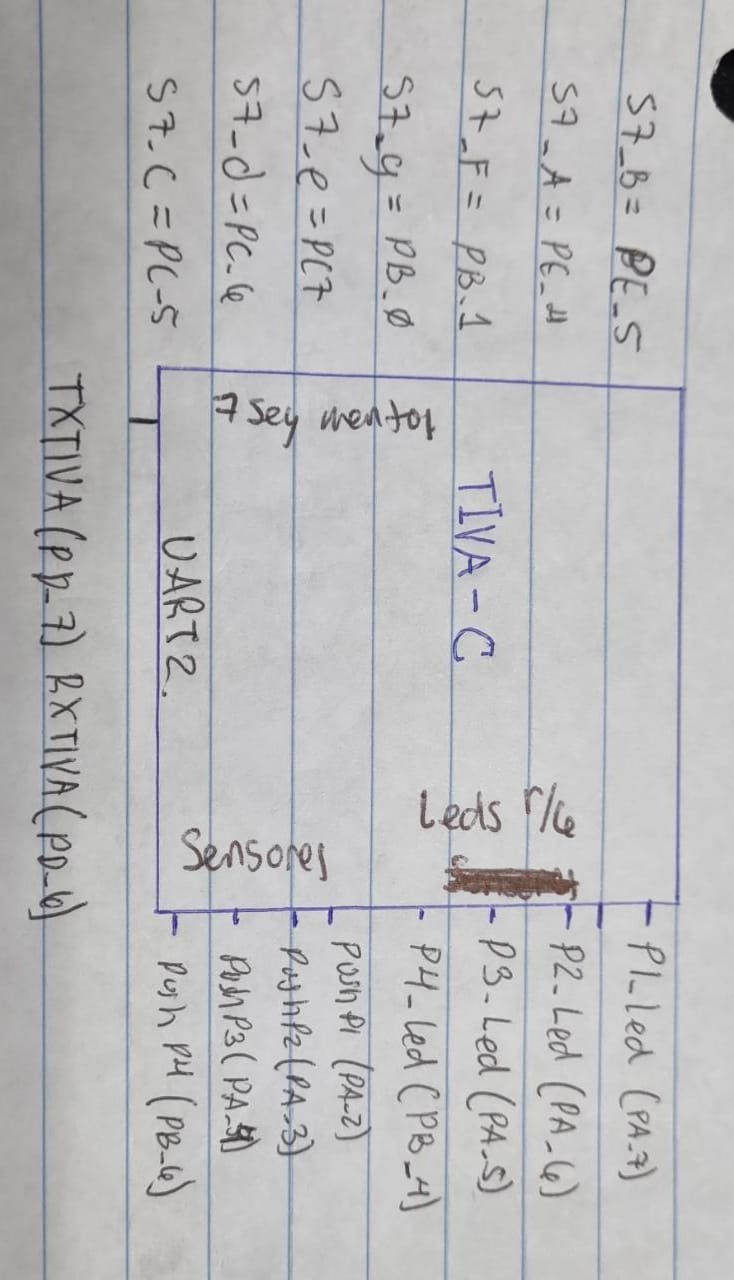 S7_B = PE_5
S7_A = PE_4
S7_F = PB_1
S7_g = PB_0
S7_e = PC7
S7_d = PC_6
S7_C = PC_5
7 Segmentos
TIVA-C
UART2.
Leds r/6
Sensores
P1_Led (PA_7)
P2_Led (PA_6)
P3_Led (PA_5)
P4_Led (PB_4)
Push P1 (PA_2)
Push P2 (PA_3)
Push P3 (PA_4)
Push P4 (PB_6)
TXTIVA (PD_7) RXTIVA (PD_6)